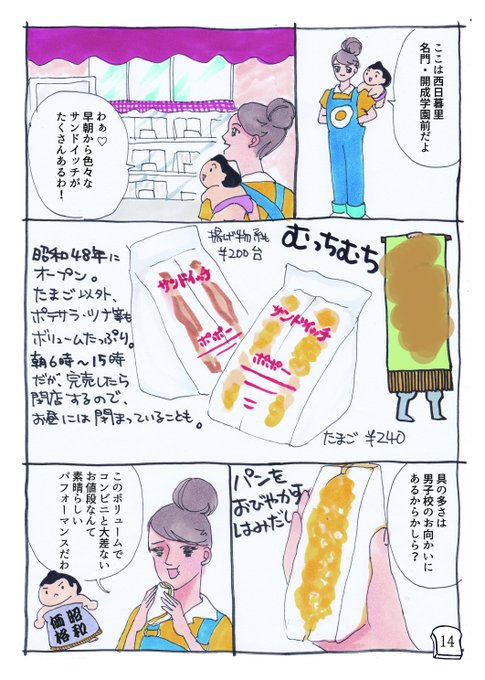 ここは西日暮里
名門・開成学園前だよ
わぁ♡
早朝から色々な
サンドイッチが
たくさんあるわ！
むっちむち
揚げ物系も
¥200台
昭和48年に
オープン。
たまご以外、
ポテサラ・ツナ等も
ボリュームたっぷり。
朝6時〜15時
だが、完売したら
閉店するので、
お昼には閉まっていることも。
サンドイッチ
ポポー
サンドイッチ
ポポー
たまご ¥240
具の多さは
男子校のお向かいに
あるからかしら？
パンを
おびやかす
はみだし
このボリュームで
コンビニと大差ない
お値段なんて
素晴らしい
パフォーマンスだわ
昭和
価格
14